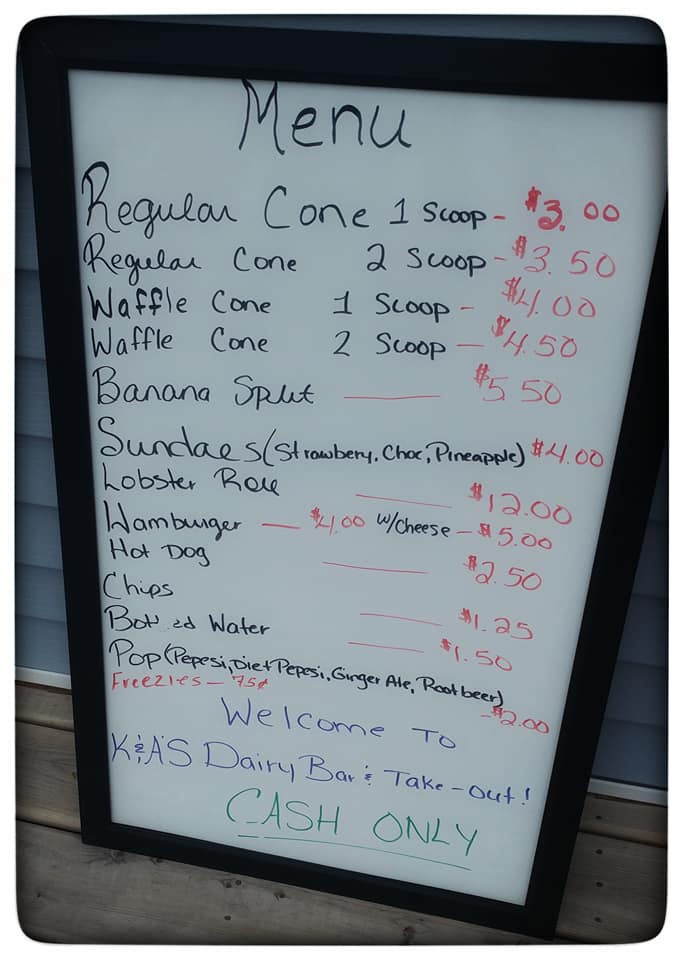 Menu
Regular Cone 1 Scoop - $3.00
Regular Cone 2 Scoop - $3.50
Waffle Cone 1 Scoop - $4.00
Waffle Cone 2 Scoop - $4.50
Banana Split — $5.50
Sundaes (Strawbery, Choc, Pineapple) $4.00
Lobster Roll — $12.00
Hamburger — $4.00 w/cheese - $5.00
Hot Dog — $2.50
Chips — $1.25
Bottled Water — $1.50
Pop (Pepesi, Diet Pepesi, Ginger Ale, Rootbeer)
Freezies - 75¢ - $2.00
Welcome To
K&A'S Dairy Bar & Take-out!
CASH ONLY